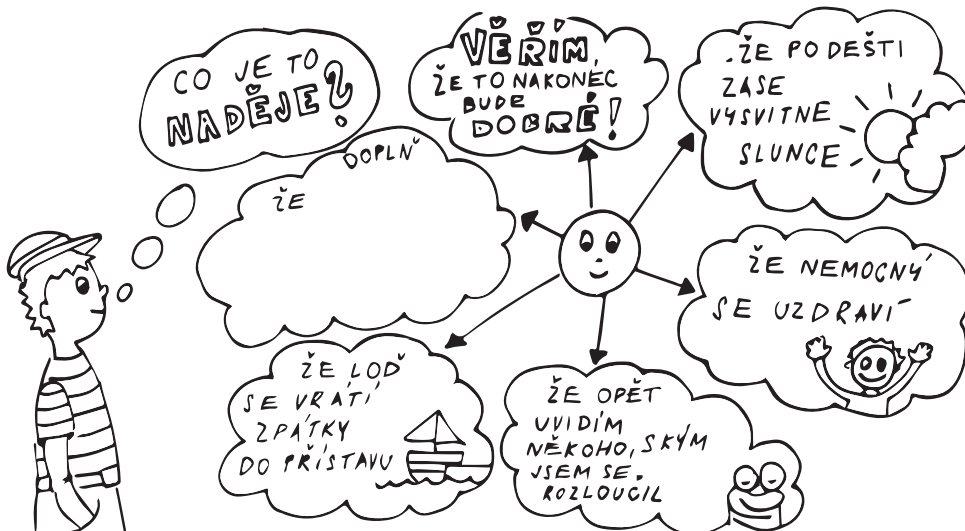 CO JE TO
NADĚJE?
VĚŘÍM,
ŽE TO NAKONEC
BUDE
DOBRÉ!
.ŽE PO DEŠTI
ZASE
VYSVITNE
SLUNCE
DOPLŇ
ŽE
ŽE NEMOCNÝ
SE UZDRAVÍ
ŽE LOĎ
SE VRÁTÍ
ZPÁTKY
DO PŘÍSTAVU
ŽE OPĚT
UVIDÍM
NĚKOHO, SKÝM
JSEM SE.
ROZLOUCIL